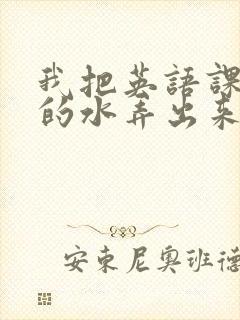 我把英語課
的水弄出來
安東尼奧班德